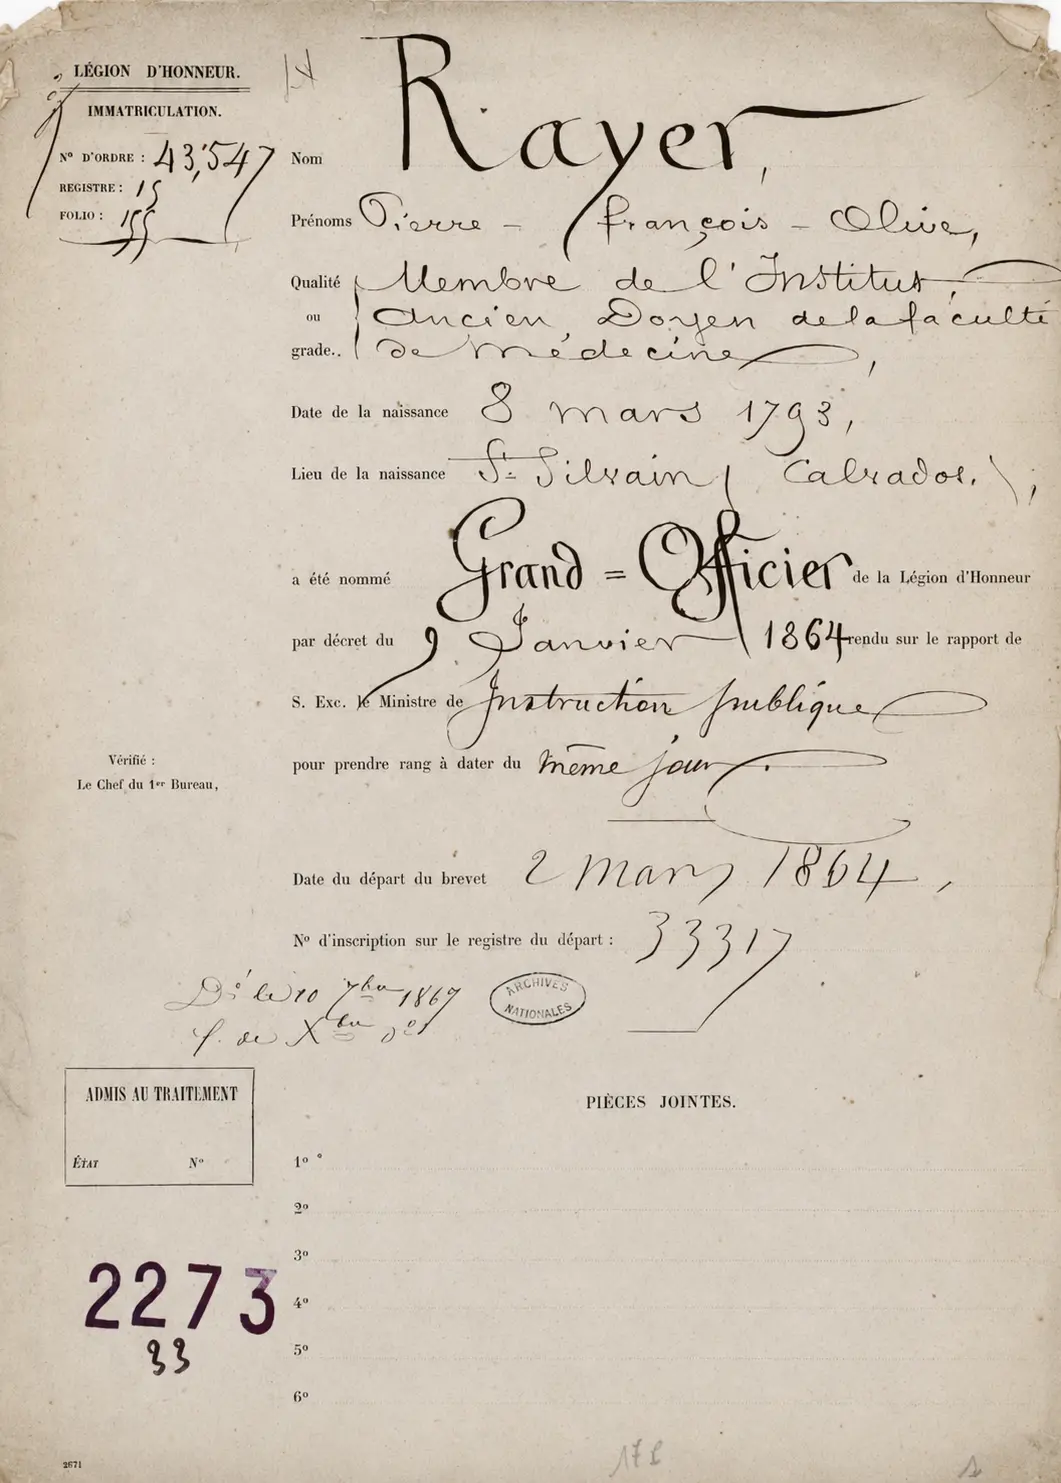 LÉGION D'HONNEUR.
IMMATRICULATION.
N° D'ORDRE : 43,547
REGISTRE : 15
FOLIO : 155
Nom Rayer,
Prénoms Pierre - François - Olive,
Qualité ou grade.. Membre de l'Institut,
Ancien Doyen de la faculté
de Médecine,
Date de la naissance 8 mars 1793,
Lieu de la naissance St Silvain (Calvados.);
a été nommé Grand = Officier de la Légion d'Honneur
par décret du 9 Janvier 1864 rendu sur le rapport de
S. Exc. le Ministre de Instruction publique
pour prendre rang à dater du même jour.
Vérifié :
Le Chef du 1er Bureau,
Date du départ du brevet 2 Mars 1864,
N° d'inscription sur le registre du départ : 33317
Dé le 10 7bre 1867
l. de Xbre do
ARCHIVES NATIONALES
ADMIS AU TRAITEMENT
ÉTAT N°
PIÈCES JOINTES.
1°
2°
3°
4°
5°
6°
2273
33
2671